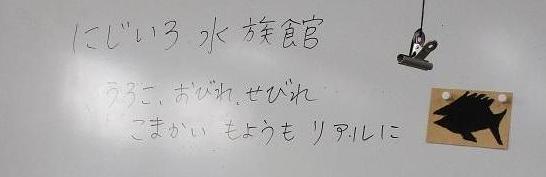 にじいろ 水族館
うろこ、おびれ、せびれ
こまかい もようも リアルに